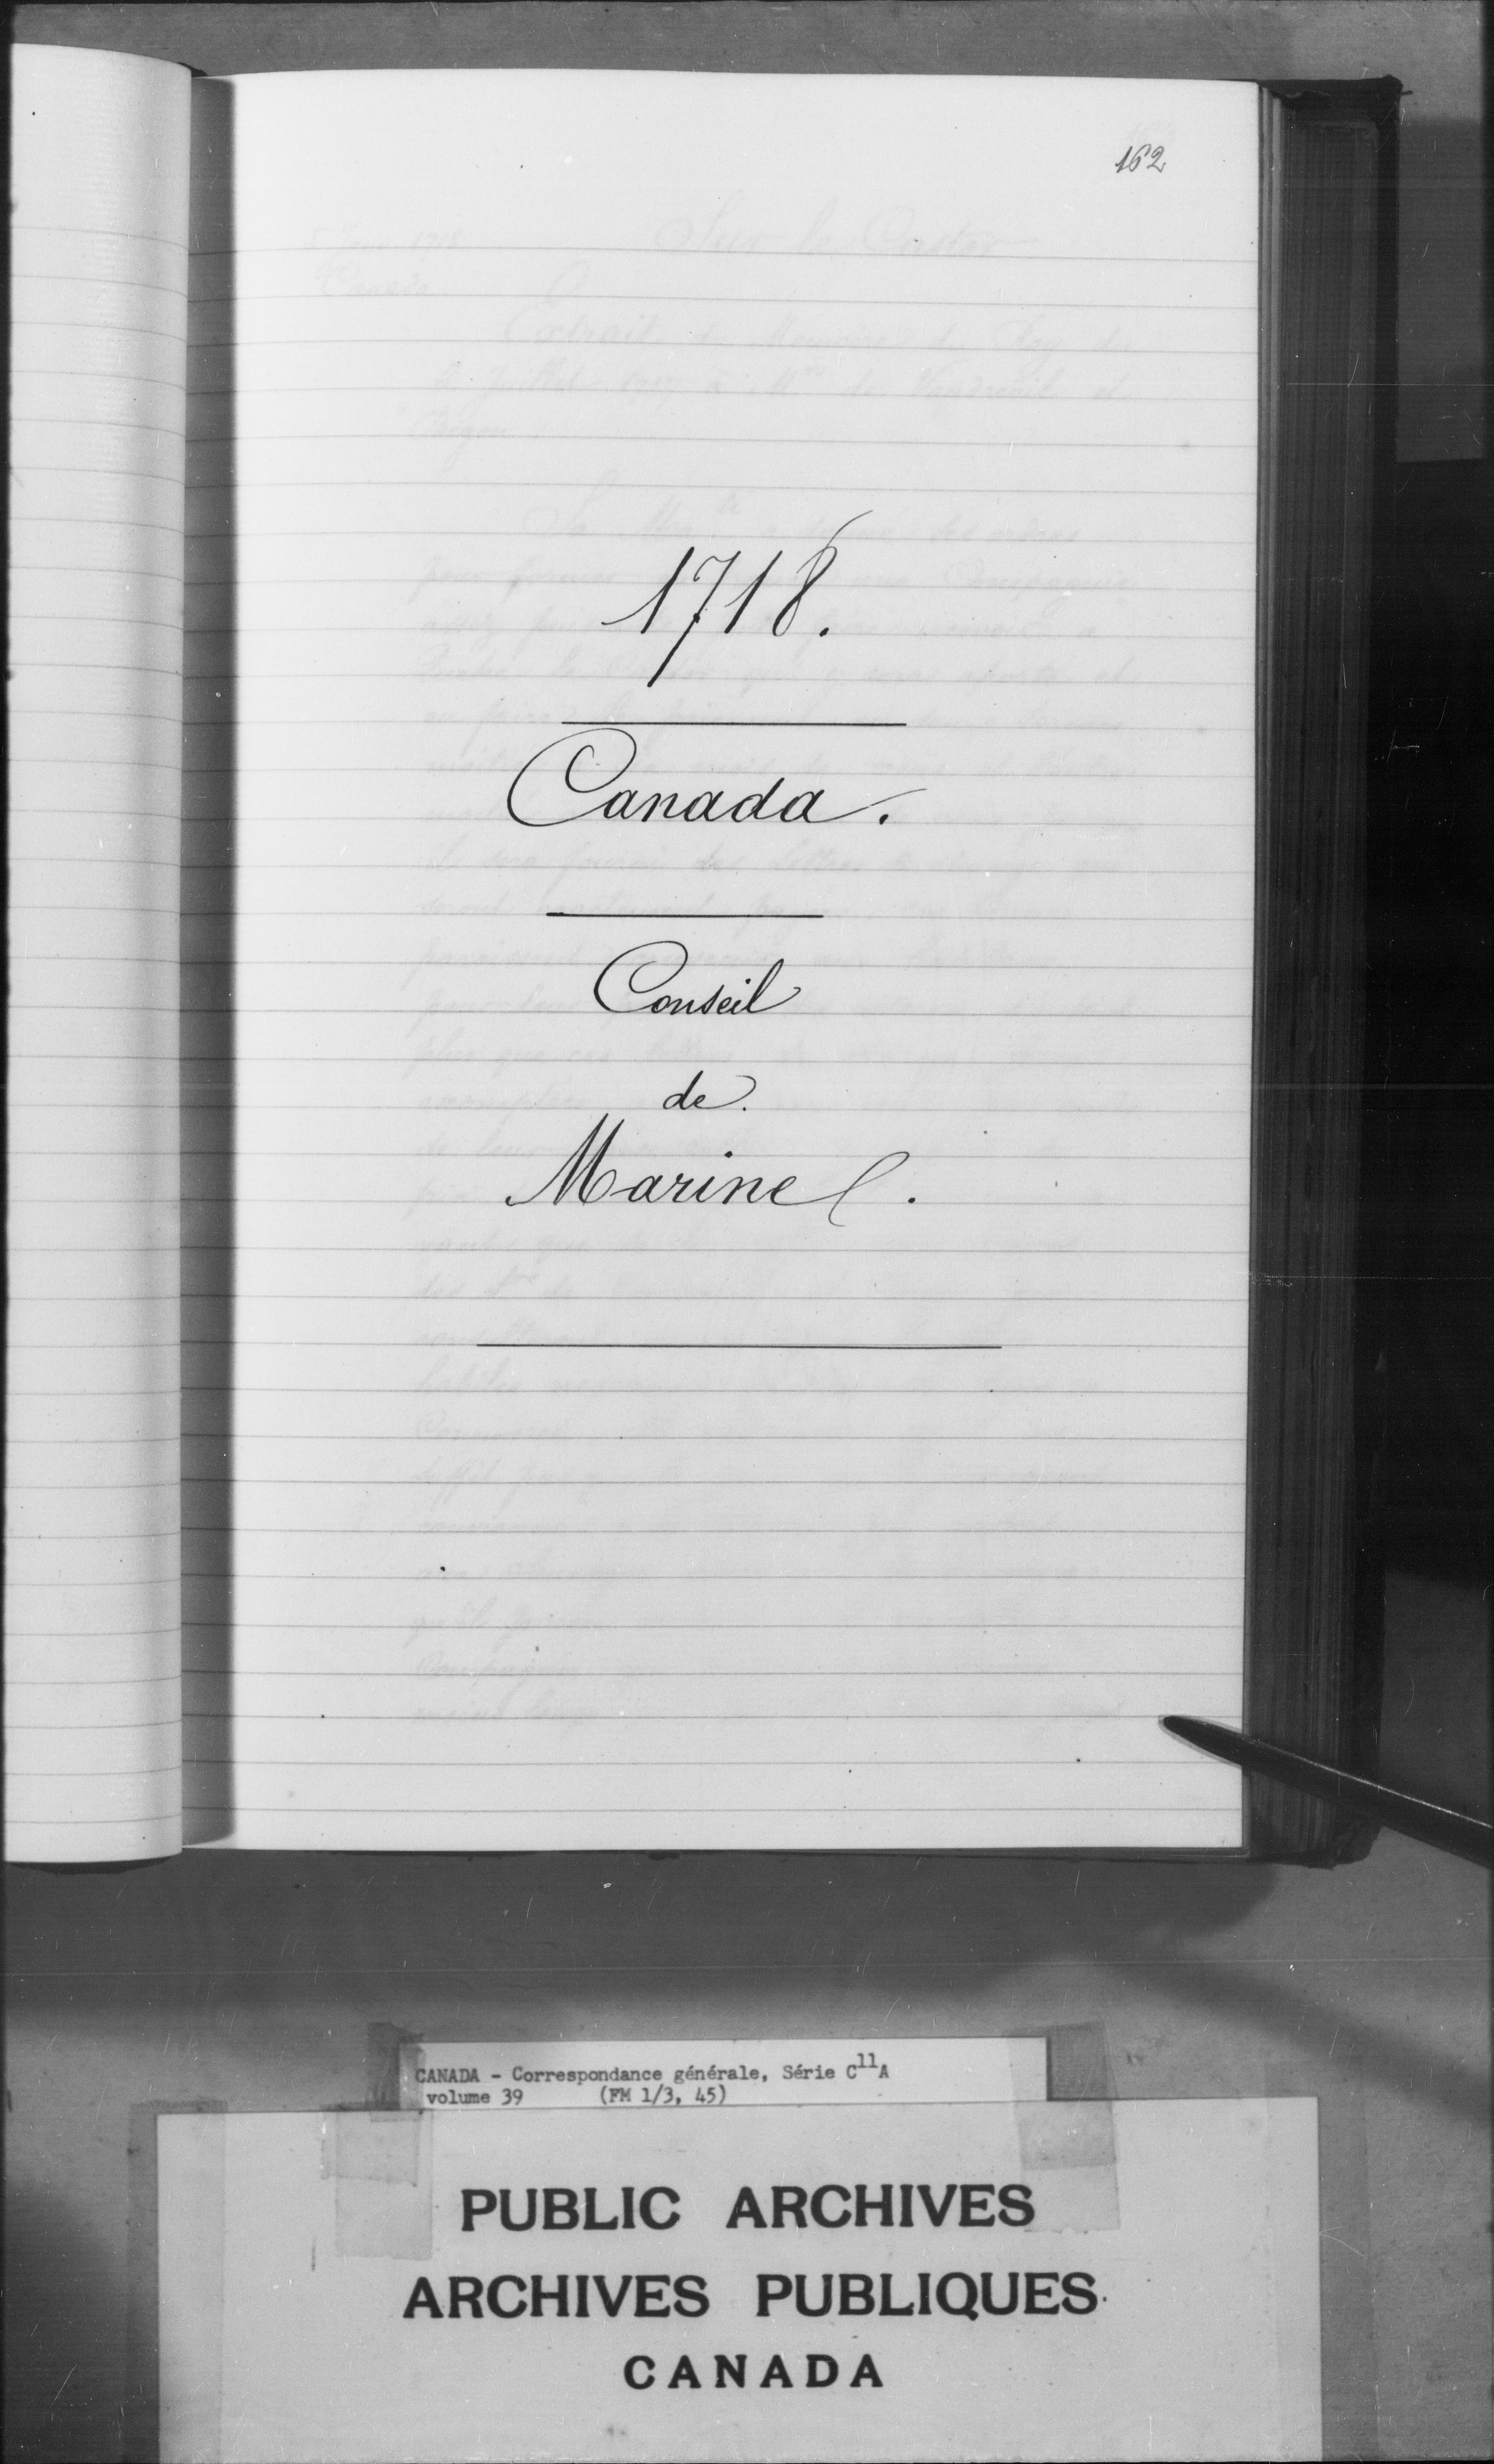 162
1718.
Canada.
Conseil
de.
Marine.
CANADA - Correspondance générale, Série C11A
volume 39 (FM 1/3, 45)
PUBLIC ARCHIVES
ARCHIVES PUBLIQUES
CANADA